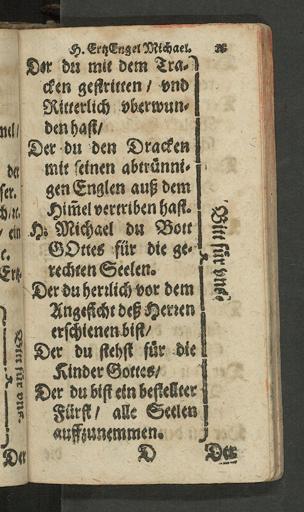 H. ErtzEngel Michael.
Der du mit dem Tra-
cken gestritten / vnd
Ritterlich vberwun-
den hast /
Der du den Dracken
mit seinen abtrünni-
gen Englen auß dem
Him̃el vertriben hast.
H. Michael du Bott
GOttes für die ge-
rechten Seelen.
Der du herzlich vor dem
Angesicht deß Herren
erschienen bist /
Der du stehst für die
Kinder Gottes /
Der du bist ein bestellter
Fürst / alle Seelen
auffzunemmen.
Bitt für vns.
D Der
mel /
der
ein
Ertz-
Bitt für vns.
Der